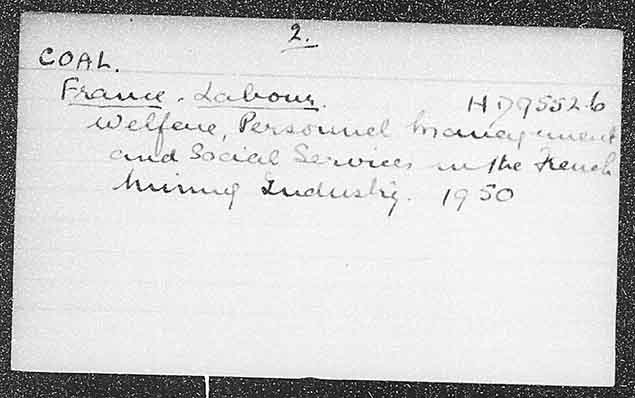 2.
COAL.
France. Labour. HD9552.6
Welfare, Personnel Management
and Social Services in the French
Mining Industry. 1950